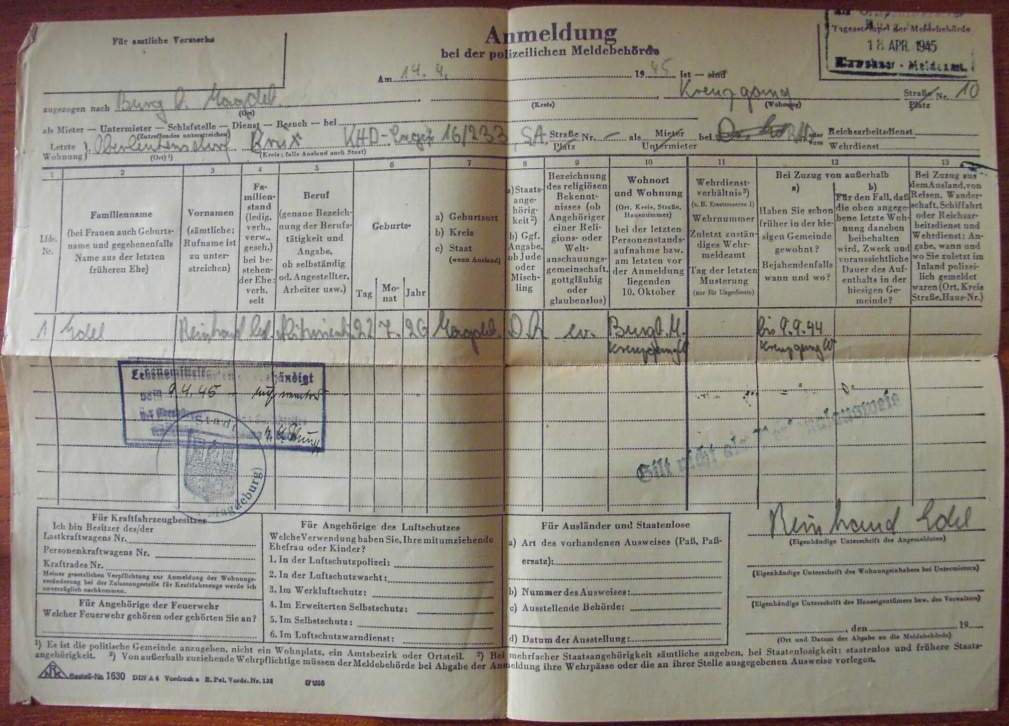 Für amtliche Vermerke
Anmeldung
bei der polizeilichen Meldebehörde
Tagesstempel der Meldebehörde
18. APR. 1945
Am 14. 4. 1945 ist — sind
zugezogen nach Burg b. Magdeb. Kreuzgang Straße Platz Nr. 10
(Ort) (Kreis) (Wohnung)
als Mieter — Untermieter — Schlafstelle — Dienst — Besuch — bei
(Zutreffendes unterstreichen)
Letzte Wohnung: Oberleutensdorf Brüx 16/233, Straße Platz Nr. — als Mieter Untermieter bei RAD oder vom Reichsarbeitsdienst Wehrdienst
(Ort) ¹) (Kreis; falls Ausland auch Staat)
1 2 3 4 5 6 7 8 9 10 11 12 13
Lfde. Nr.
Familienname (bei Frauen auch Geburtsname und gegebenenfalls Name aus der letzten früheren Ehe)
Vornamen (sämtliche; Rufname ist zu unterstreichen)
Familienstand (ledig, verh., verw., gesch.) bei bestehender Ehe: verh. seit
Beruf (genaue Bezeichnung der Berufstätigkeit und Angabe, ob selbständig od. Angestellter, Arbeiter usw.)
Geburts-
Tag Monat Jahr
a) Geburtsort
b) Kreis
c) Staat
(wenn Ausland)
a) Staatsangehörigkeit ²)
b) Ggf. Angabe, ob Jude oder Mischling
Bezeichnung des religiösen Bekenntnisses (ob Angehöriger einer Religions- oder Weltanschauungsgemeinschaft, gottgläubig oder glaubenslos)
Wohnort und Wohnung (Ort, Kreis, Straße, Hausnummer) bei der letzten Personenstandsaufnahme bzw. am letzten vor der Anmeldung liegenden 10. Oktober
Wehrdienstverhältnis ³) (z. B. Ersatzreserve I)
Wehrnummer
Zuletzt zuständiges Wehrmeldeamt
Tag der letzten Musterung
(nur für Ungediente)
Bei Zuzug von außerhalb
a) Haben Sie schon früher in der hiesigen Gemeinde gewohnt? Bejahendenfalls wann und wo?
b) Für den Fall, daß die oben angegebene letzte Wohnung daneben beibehalten wird, Zweck und voraussichtliche Dauer des Aufenthalts in der hiesigen Gemeinde?
Bei Zuzug aus dem Ausland, von Reisen, Wanderschaft, Schiffahrt oder Reichsarbeitsdienst und Wehrdienst: Angabe, wann und wo Sie zuletzt im Inland polizeilich gemeldet waren (Ort, Kreis Straße, Haus-Nr.)
1 Edel Reinhard led. 22 7. 26 Magdeb. D.R. ev. Burg b. M. bis 9.9.44
Kreuzgang 10 Kreuzgang 10
9.4.45
Stadt
Magdeburg
Gilt nicht als
Für Kraftfahrzeugbesitzer
Ich bin Besitzer des/der
Lastkraftwagens Nr.
Personenkraftwagens Nr.
Kraftrades Nr.
Meiner gesetzlichen Verpflichtung zur Anmeldung der Wohnungsveränderung bei der Zulassungsstelle für Kraftfahrzeuge werde ich unverzüglich nachkommen.
Für Angehörige der Feuerwehr
Welcher Feuerwehr gehören oder gehörten Sie an?
Für Angehörige des Luftschutzes
Welche Verwendung haben Sie, Ihre mitumziehende Ehefrau oder Kinder?
1. In der Luftschutzpolizei:
2. In der Luftschutzwacht:
3. Im Werkluftschutz:
4. Im Erweiterten Selbstschutz:
5. Im Selbstschutz:
6. Im Luftschutzwarndienst:
Für Ausländer und Staatenlose
a) Art des vorhandenen Ausweises (Paß, Paßersatz):
b) Nummer des Ausweises:
c) Ausstellende Behörde:
d) Datum der Ausstellung:
Reinhard Edel
(Eigenhändige Unterschrift des Anmeldenden)
(Eigenhändige Unterschrift des Wohnungsinhabers bei Untermietern)
(Eigenhändige Unterschrift des Hauseigentümers bzw. des Verwalters)
, den 19
(Ort und Datum der Abgabe an die Meldebehörde)
¹) Es ist die politische Gemeinde anzugeben, nicht ein Wohnplatz, ein Amtsbezirk oder Ortsteil. ²) Bei mehrfacher Staatsangehörigkeit sämtliche angeben, bei Staatenlosigkeit: staatenlos und frühere Staatsangehörigkeit. ³) Von außerhalb zuziehende Wehrpflichtige müssen der Meldebehörde bei Abgabe der Anmeldung ihre Wehrpässe oder die an ihrer Stelle ausgegebenen Ausweise vorlegen.
Bestell-Nr. 1630 DIN A 4 Vordruck a R. Pol. Vordr. Nr. 138